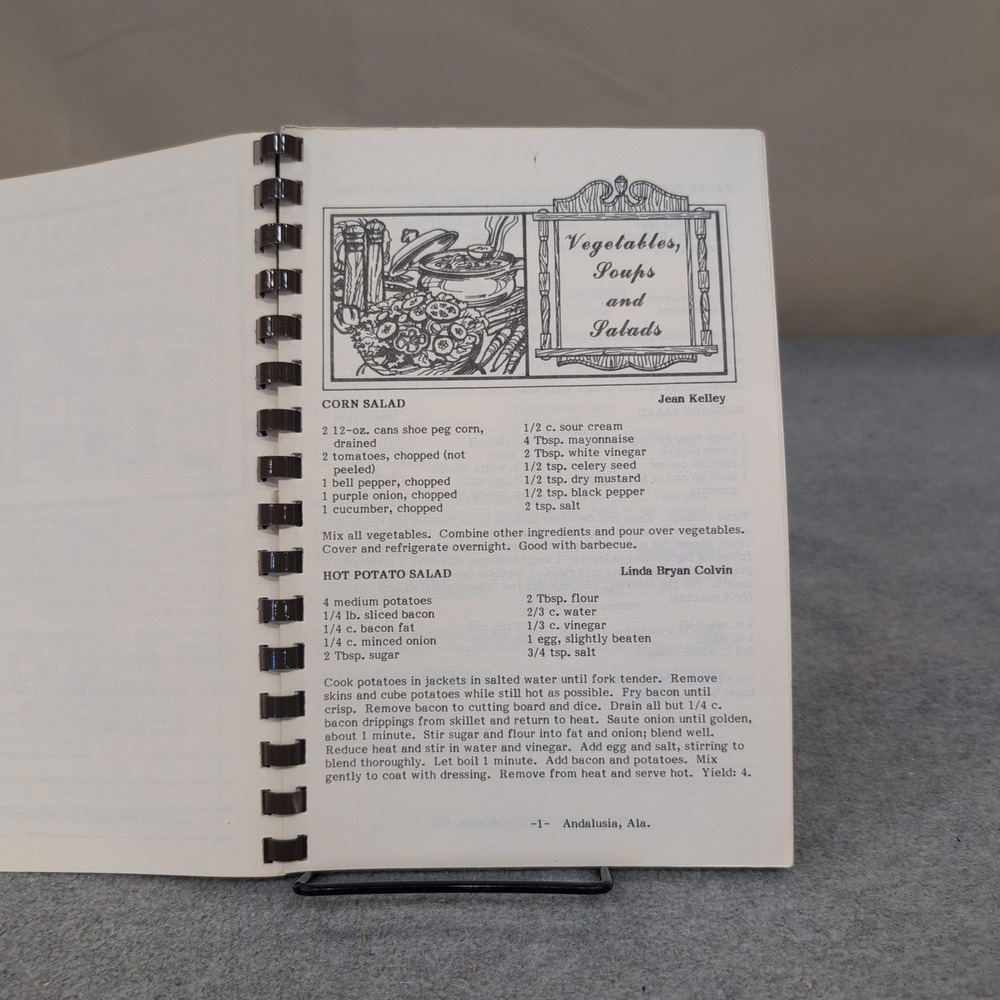 Vegetables,
Soups
and
Salads
CORN SALAD
Jean Kelley
2 12-oz. cans shoe peg corn,
drained
2 tomatoes, chopped (not
peeled)
1 bell pepper, chopped
1 purple onion, chopped
1 cucumber, chopped
1/2 c. sour cream
4 Tbsp. mayonnaise
2 Tbsp. white vinegar
1/2 tsp. celery seed
1/2 tsp. dry mustard
1/2 tsp. black pepper
2 tsp. salt
Mix all vegetables. Combine other ingredients and pour over vegetables.
Cover and refrigerate overnight. Good with barbecue.
HOT POTATO SALAD
Linda Bryan Colvin
4 medium potatoes
1/4 lb. sliced bacon
1/4 c. bacon fat
1/4 c. minced onion
2 Tbsp. sugar
2 Tbsp. flour
2/3 c. water
1/3 c. vinegar
1 egg, slightly beaten
3/4 tsp. salt
Cook potatoes in jackets in salted water until fork tender. Remove
skins and cube potatoes while still hot as possible. Fry bacon until
crisp. Remove bacon to cutting board and dice. Drain all but 1/4 c.
bacon drippings from skillet and return to heat. Saute onion until golden,
about 1 minute. Stir sugar and flour into fat and onion; blend well.
Reduce heat and stir in water and vinegar. Add egg and salt, stirring to
blend thoroughly. Let boil 1 minute. Add bacon and potatoes. Mix
gently to coat with dressing. Remove from heat and serve hot. Yield: 4.
-1- Andalusia, Ala.